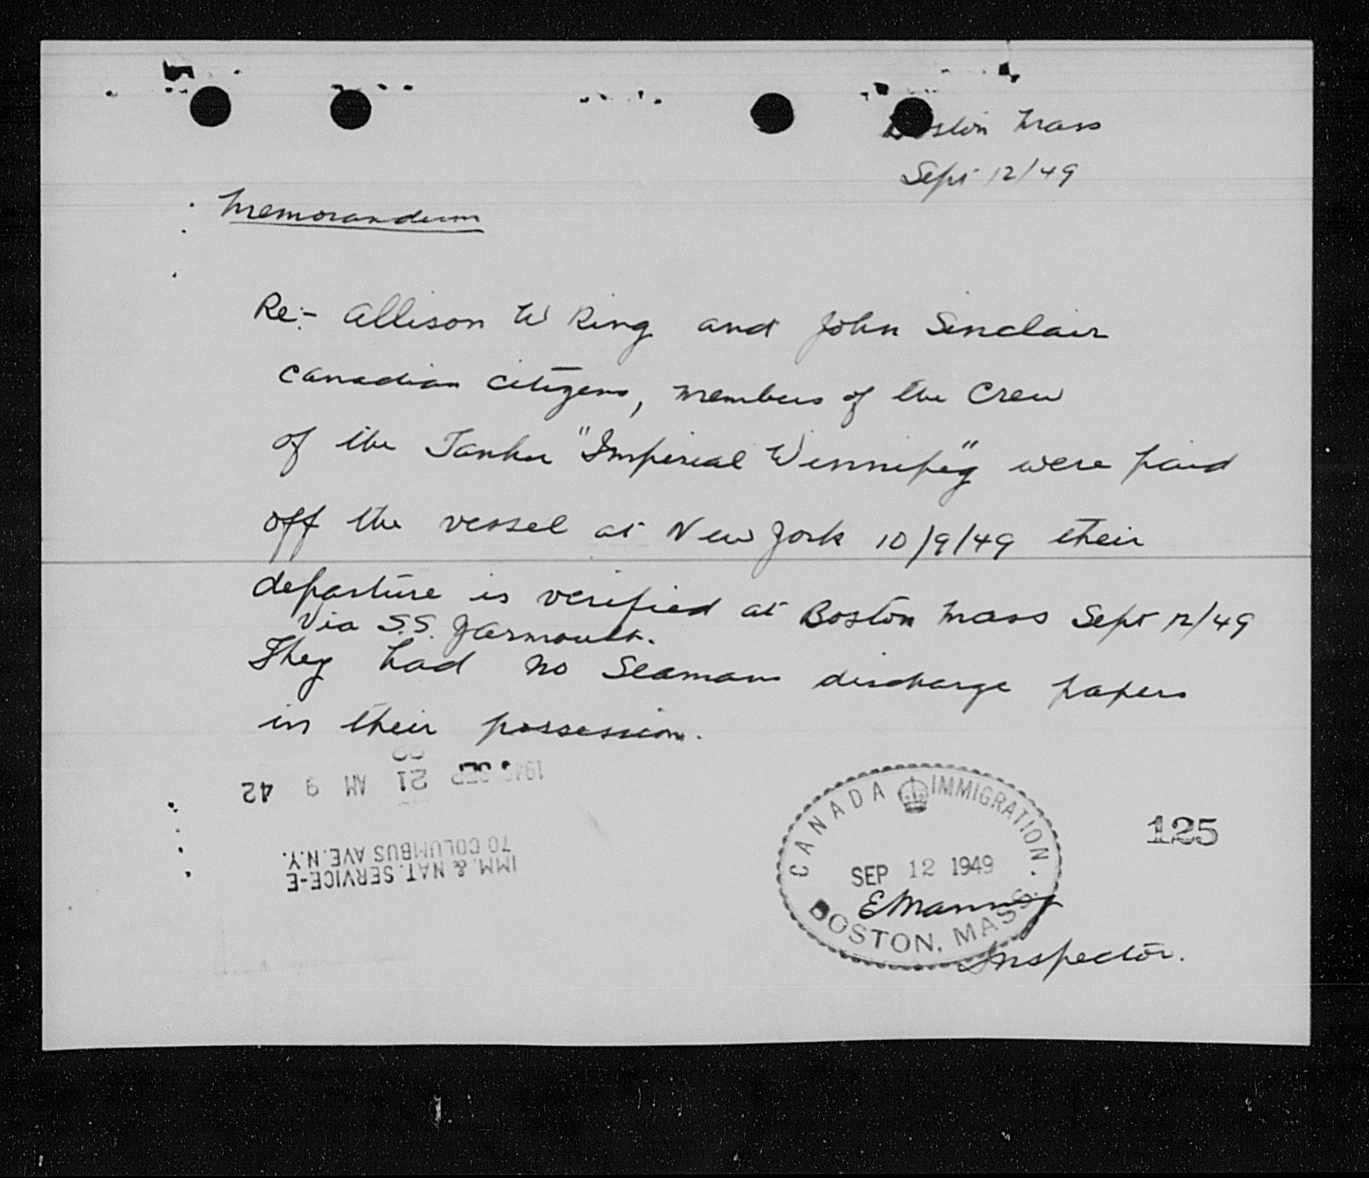 Boston Mass
Sept 12/49
Memorandum
Re:- Allison W Ring and John Sinclair
Canadian Citizens, members of the Crew
of the Tanker "Imperial Winnipeg" were paid
off the vessel at New York 10/9/49 their
departure is verified at Boston Mass Sept 12/49
Via S.S. Yarmouth.
They had no Seamans discharge papers
in their possession.
1949 SEP 21 AM 9 42
IMM. & NAT. SERVICE-E
70 COLUMBUS AVE. N.Y.
CANADA IMMIGRATION.
SEP 12 1949
BOSTON, MASS.
125
Inspector.